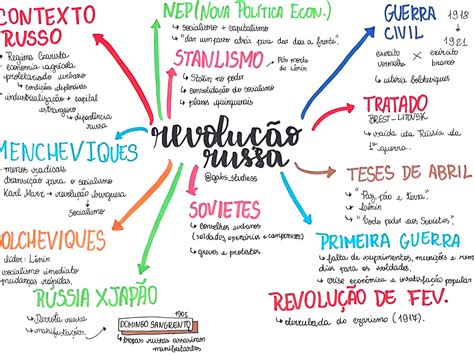 CONTEXTO
RUSSO
↳ Regime Czarista
↳ economia agrícola
↳ proletariado urbano
↳ condições deploráveis
↳ industrialização + capital
estrangeiro
↳ dependência
russa
NEP (NOVA POLÍTICA ECON.)
↳ socialismo + capitalismo
↳ "dar um passo atrás para dar dois a frente".
STANLISMO
Pós morte
do Lênin
↳ Stalin no poder
↳ consolidação do socialismo
↳ planos quinquenais
GUERRA
CIVIL
1918
1921
exército
vermelho
x
exército
branco
↳ vitória bolcheviques
TRATADO
BREST-LITOVSK
↳ saída da Rússia da
1ª guerra.
revolução
russa
@gabs_studiess
MENCHEVIQUES
menos radicais
transição para o socialismo
Karl Marx → revolução burguesa
↳ socialismo
TESES DE ABRIL
↳ "Paz, pão e terra".
↳ Lênin
↳ "Todo poder aos Sovietes".
SOVIETES
↳ conselhos urbanos
(soldados, operários e camponeses)
↳ greves e protestos
OLCHEVIQUES
líder: Lênin
socialismo imediato
mudanças rápidas
PRIMEIRA GUERRA
↳ falta de suprimentos, munições e rem
dios para os soldados.
↳ crise econômica e insatisfação popular
RÚSSIA X JAPÃO
↳ Derrota russa
↳ manifestações
1905
DOMINGO SANGRENTO
↳ tropas russas assassinam
manifestantes
REVOLUÇÃO DE FEV.
↳ derrubada do czarismo (1917).